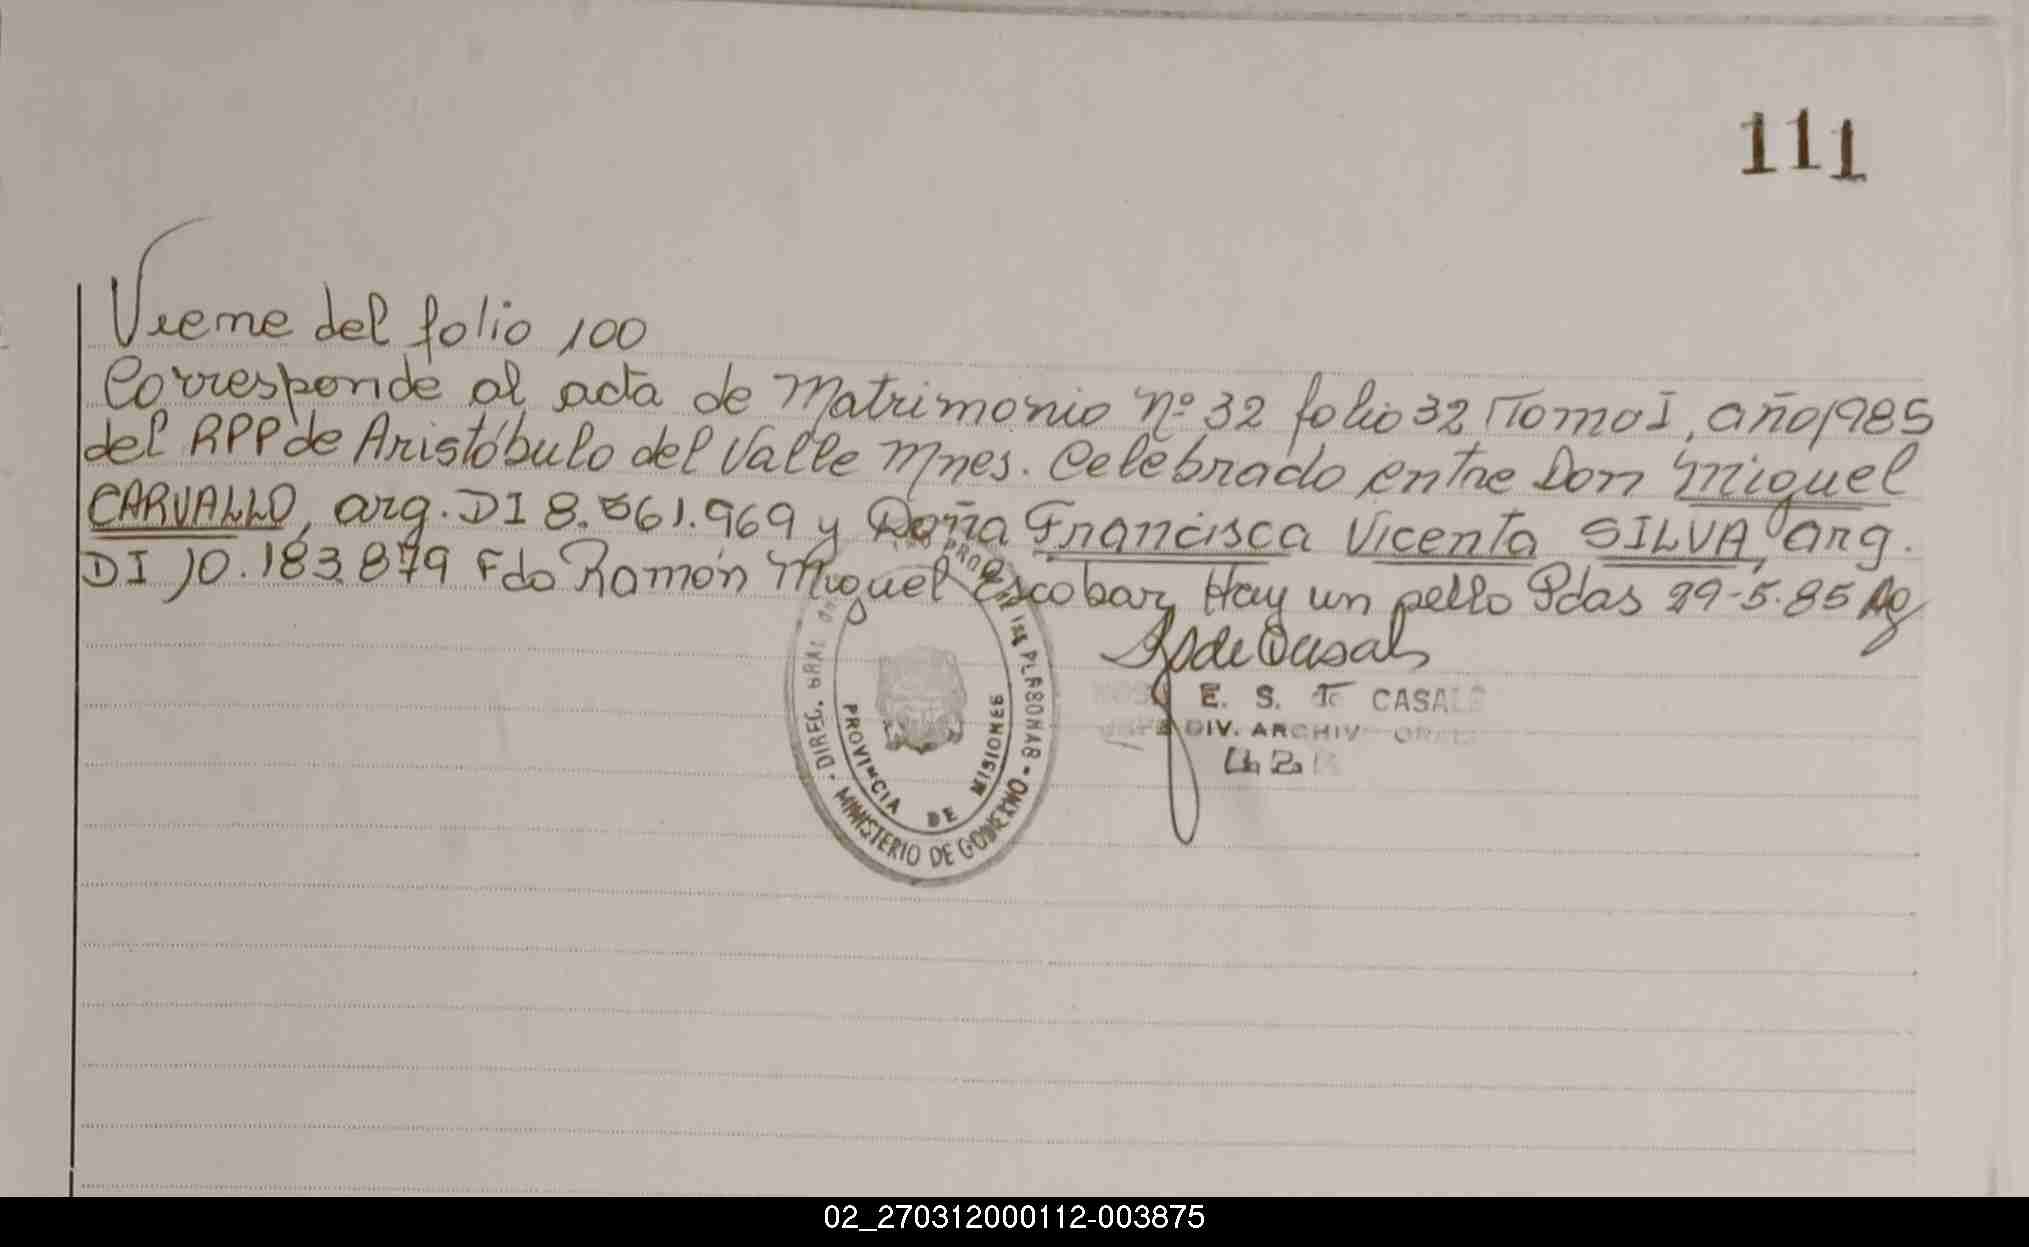 111
Vieme del folio 100
Corresponde al acta de Matrimonio nº 32 folio 32 Tomo I, año 1985
del RPP de Aristóbulo del Valle Mnes. Celebrado entre Don Miguel
CARVALLO, arg. DI 8.561.969 y Doña Francisca Vicenta SILVA, arg.
DI 10.183.879 Fdo Ramón Miguel Escobar Hay un sello Pdas 29-5-85
E. S. CASALS
DIV. ARCHIV
DIREC. GRAL
PERSONAS
MINISTERIO DE GOBIERNO
PROVINCIA DE MISIONES
02_270312000112-003875